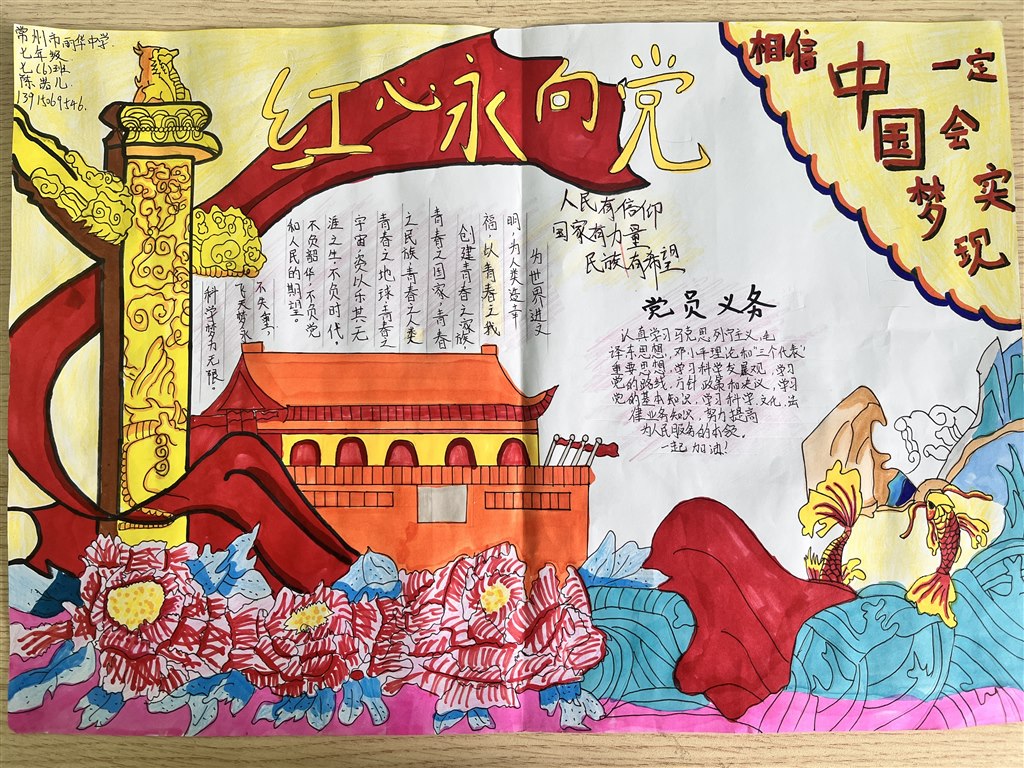 常州市丽华中学.
七年级
七(6)班
陈浩儿.
13915069546.
红心永向党
相信
中国梦
一定
会
实
现
人民有信仰
国家有力量
民族有希望
为世界进文
明,为人类造幸
福,以青春之我
创建青春之家族
青春之国家,青春
之民族青春之人类
青春之地球,青春之
宇宙,资以乐其无
涯之生.不负时代
不负韶华,不负党
和人民的期望。
不失重,
飞天梦永
科学梦力无限。
党员义务
认真学习马克思列宁主义,毛
泽东思想,邓小平理论和"三个代表"
重要思想,学习科学发展观,学习
党的路线,方针政策和决议,学习
党的基本知识,学习科学,文化,法
律业务知识,努力提高
为人民服务的本领。
一起加油!